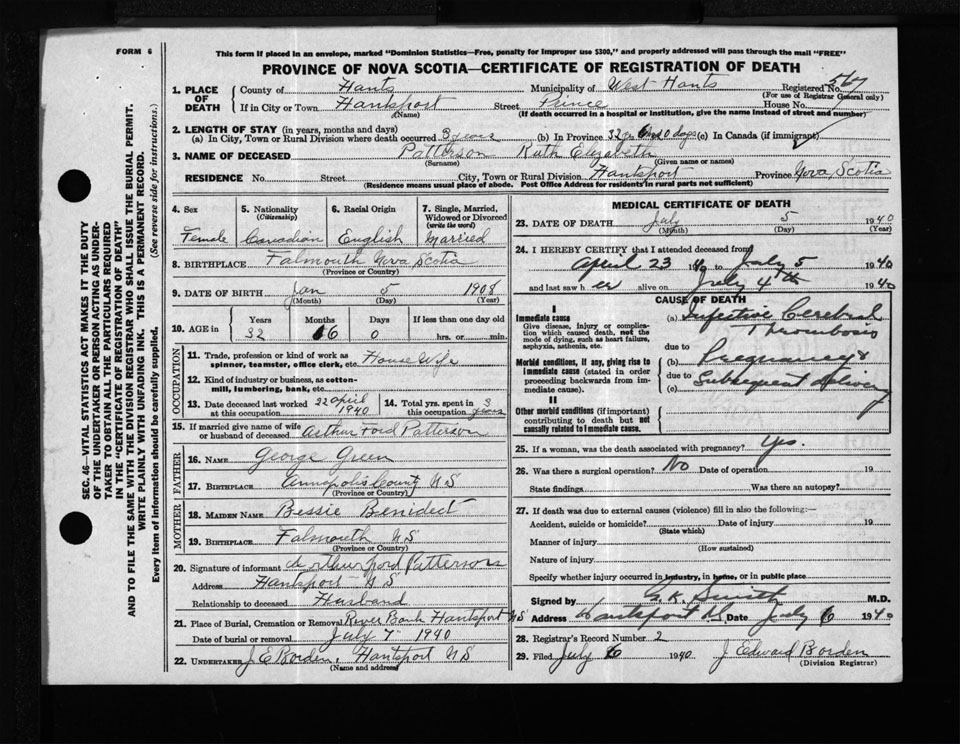 FORM 6
This form if placed in an envelope, marked "Dominion Statistics—Free, penalty for improper use $300," and properly addressed will pass through the mail "FREE"
PROVINCE OF NOVA SCOTIA—CERTIFICATE OF REGISTRATION OF DEATH
SEC. 46—VITAL STATISTICS ACT MAKES IT THE DUTY
OF THE UNDERTAKER OR PERSON ACTING AS UNDER-
TAKER TO OBTAIN ALL THE PARTICULARS REQUIRED
IN THE "CERTIFICATE OF REGISTRATION OF DEATH"
AND TO FILE THE SAME WITH THE DIVISION REGISTRAR WHO SHALL ISSUE THE BURIAL PERMIT.
WRITE PLAINLY WITH UNFADING INK. THIS IS A PERMANENT RECORD.
Every item of information should be carefully supplied. (See reverse side for instructions.)
1. PLACE OF DEATH
County of Hants Municipality of West Hants Registered No. 567
(For use of Registrar General only)
If in City or Town Hantsport Street Prince House No.
(Name) (If death occurred in a hospital or institution, give the name instead of street and number)
2. LENGTH OF STAY (in years, months and days)
(a) In City, Town or Rural Division where death occurred 3 years (b) In Province 32 yrs 6 0 days (c) In Canada (if immigrant)
3. NAME OF DECEASED Patterson Ruth Elizabeth
(Surname) (Given name or names)
RESIDENCE No. Street City, Town or Rural Division Hantsport Province Nova Scotia
(Residence means usual place of abode. Post Office Address for residents in rural parts not sufficient)
4. Sex 5. Nationality (Citizenship) 6. Racial Origin 7. Single, Married, Widowed or Divorced (write the word)
Female Canadian English Married
8. BIRTHPLACE Falmouth Nova Scotia
(Province or Country)
9. DATE OF BIRTH Jan 5 1908
(Month) (Day) (Year)
10. AGE in Years Months Days If less than one day old
32 6 0 hrs. or min.
OCCUPATION
11. Trade, profession or kind of work as spinner, teamster, office clerk, etc. House Wife
12. Kind of industry or business, as cotton-mill, lumbering, bank, etc.
13. Date deceased last worked at this occupation 22 April 1940 14. Total yrs. spent in this occupation 3 years
15. If married give name of wife or husband of deceased Arthur Ford Patterson
FATHER
16. NAME George Green
17. BIRTHPLACE Annapolis County NS
(Province or Country)
MOTHER
18. MAIDEN NAME Bessie Benidect
19. BIRTHPLACE Falmouth NS
(Province or Country)
20. Signature of informant Arthur Ford Patterson
Address Hantsport NS
Relationship to deceased Husband
21. Place of Burial, Cremation or Removal River Bank Hantsport NS
Date of burial or removal July 7 1940
22. UNDERTAKER J E Borden, Hantsport NS
(Name and address)
MEDICAL CERTIFICATE OF DEATH
23. DATE OF DEATH July 5 1940
(Month) (Day) (Year)
24. I HEREBY CERTIFY that I attended deceased from
April 23 to July 5 1940
and last saw her alive on July 4th 1940
CAUSE OF DEATH
I
Immediate cause
Give disease, injury or complication which caused death, not the mode of dying, such as heart failure, asphyxia, asthenia, etc.
(a) Infective Cerebral Thrombosis
due to
Morbid conditions, if any, giving rise to immediate cause (stated in order proceeding backwards from immediate cause).
(b) Pregnancy &
due to
(c) Subsequent delivery
II
Other morbid conditions (if important) contributing to death but not causally related to immediate cause.
25. If a woman, was the death associated with pregnancy? Yes.
26. Was there a surgical operation? No Date of operation 19
State findings Was there an autopsy?
27. If death was due to external causes (violence) fill in also the following:—
Accident, suicide or homicide? Date of injury 19
(State which)
Manner of injury
(How sustained)
Nature of injury
Specify whether injury occurred in industry, in home, or in public place
Signed by K. Smith M.D.
Address Hantsport N.S. Date July 6 1940
28. Registrar's Record Number 2
29. Filed July 6 1940 J Edward Borden
(Division Registrar)